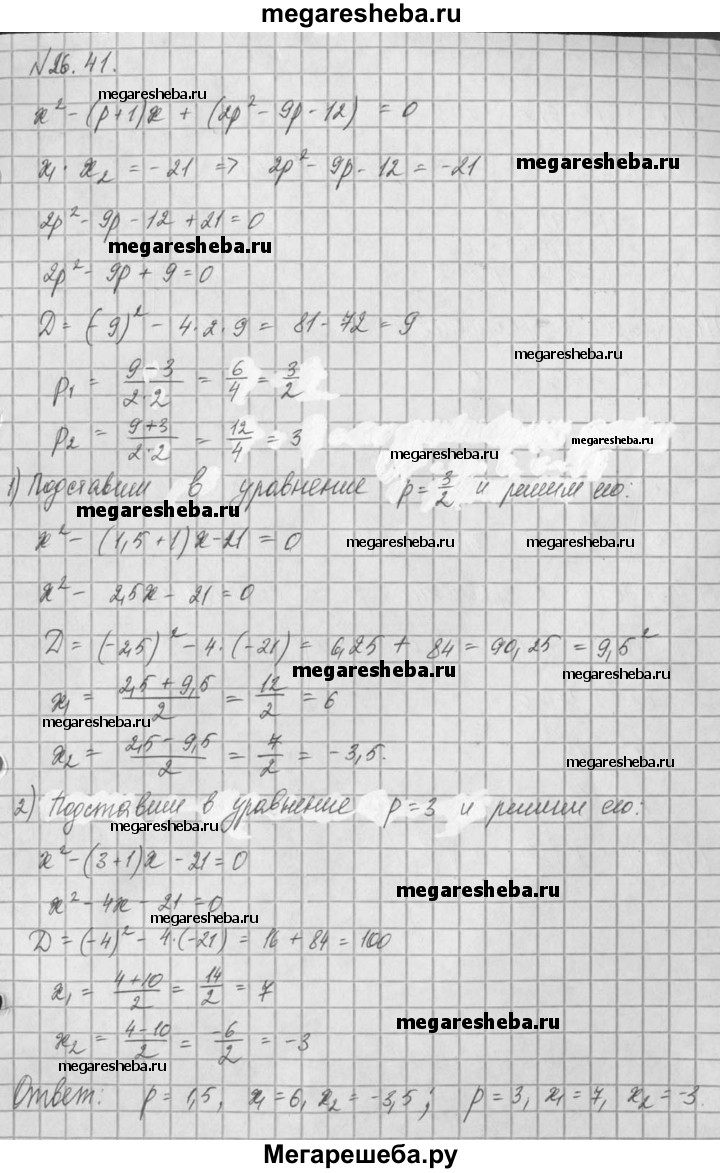 megaresheba.ru
№26.41.
megaresheba.ru
x² - (p+1)x + (2p² - 9p - 12) = 0
x₁ · x₂ = -21 => 2p² - 9p - 12 = -21
megaresheba.ru
2p² - 9p - 12 + 21 = 0
megaresheba.ru
2p² - 9p + 9 = 0
D = (-9)² - 4·2·9 = 81 - 72 = 9
megaresheba.ru
p₁ = (9-3)/(2·2) = 6/4 = 3/2
p₂ = (9+3)/(2·2) = 12/4 = 3
megaresheba.ru
megaresheba.ru
1) Подставим в уравнение p = 3/2 и решим его:
megaresheba.ru
x² - (1,5+1)x - 21 = 0
megaresheba.ru
megaresheba.ru
x² - 2,5x - 21 = 0
D = (-2,5)² - 4·(-21) = 6,25 + 84 = 90,25 = 9,5²
megaresheba.ru
x₁ = (2,5+9,5)/2 = 12/2 = 6
megaresheba.ru
x₂ = (2,5-9,5)/2 = 7/2 = -3,5.
megaresheba.ru
2) Подставим в уравнение p=3 и решим его:
megaresheba.ru
x² - (3+1)x - 21 = 0
megaresheba.ru
x² - 4x - 21 = 0
megaresheba.ru
D = (-4)² - 4·(-21) = 16 + 84 = 100
x₁ = (4+10)/2 = 14/2 = 7
megaresheba.ru
x₂ = (4-10)/2 = -6/2 = -3
megaresheba.ru
Ответ: p = 1,5, x₁=6, x₂ = -3,5; p=3, x₁=7, x₂=-3.
Мегарешеба.ру